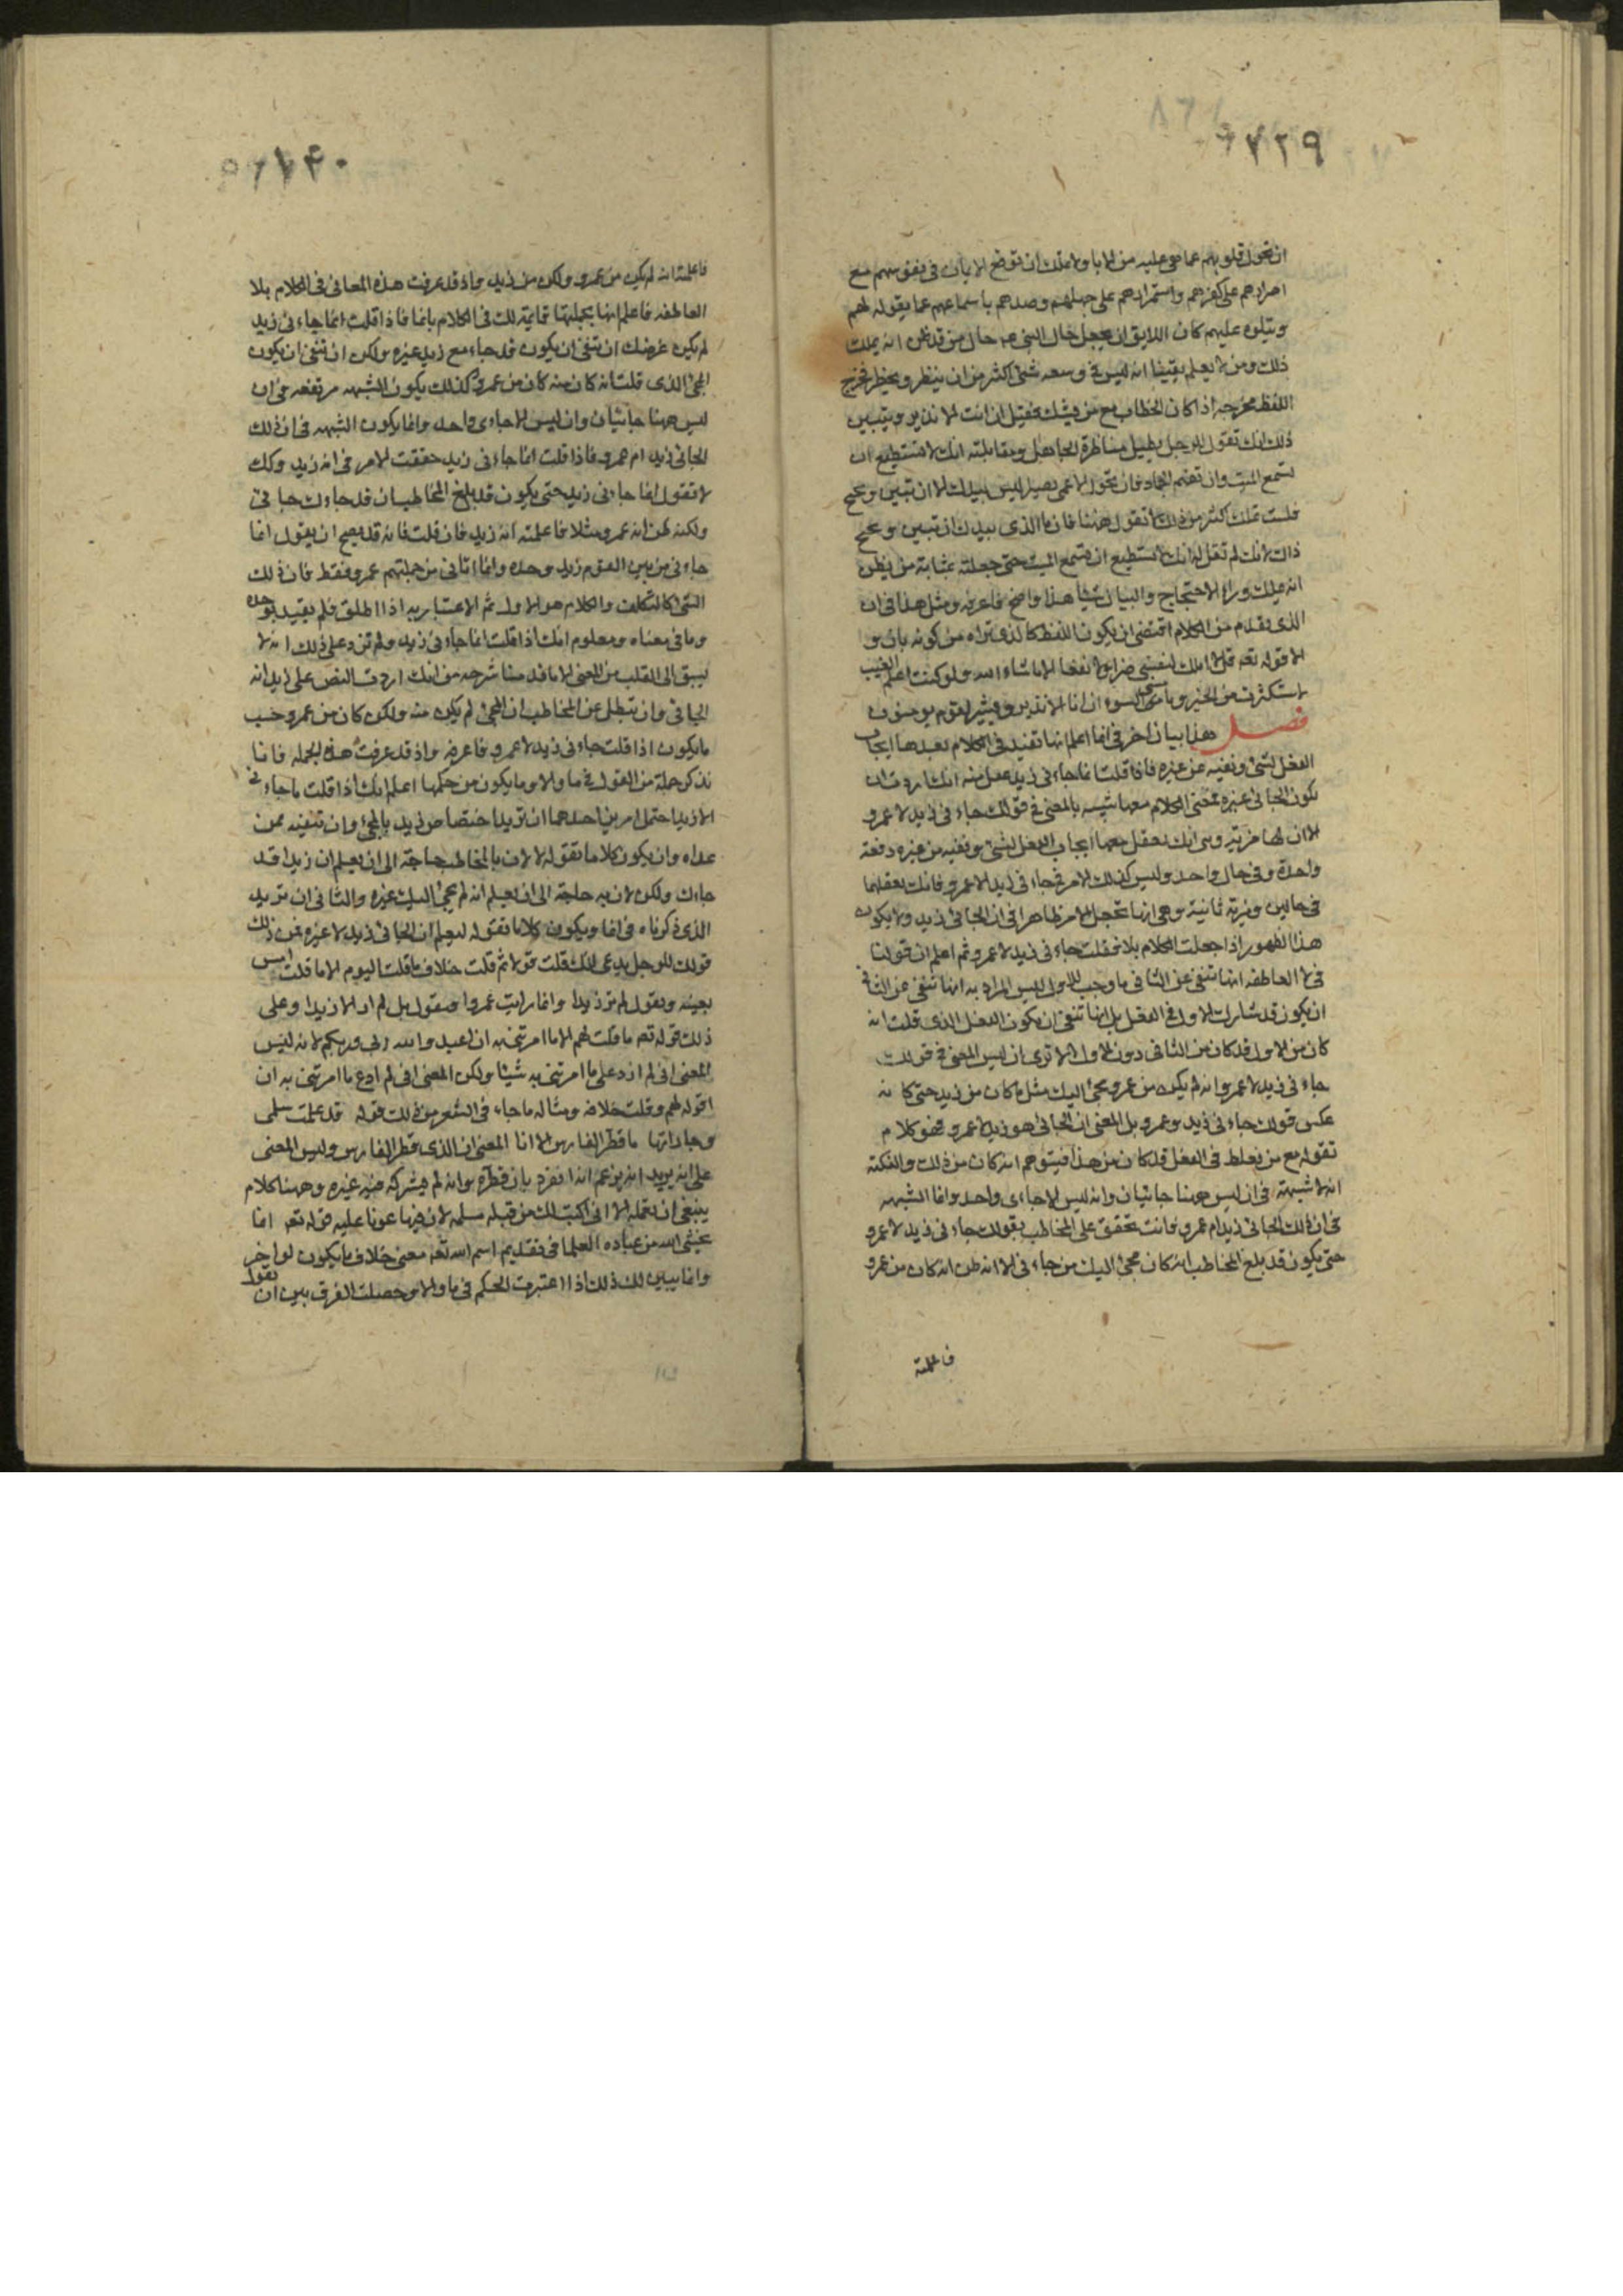 ٢٣٩
ان تحول قلوبهم عما هي عليه من الابا ولا تملك ان توقع الايمان في نفوسهم مع
اصرارهم على كفرهم واستمرارهم على جهلهم وصدهم باسماعهم عما يقوله لهم
ويتلوه عليهم كان اللايق ان يجعل حال النبي حال من قد ظن انه يملك
ذلك ومن لا يعلم يقينا انه ليس في وسعه شئ اكثر من ان ينظر ويحذر فخرج
اللفظ مخرجه اذا كان الخطاب مع من يشك فقيل ان انت الا نذير ويبين
ذلك انك تقول للرجل يطيل مناظرة الجاهل ومقابلته انك لا تستطيع ان
تسمع الميت وان تفهم الجماد وان تحول الاعمى بصيرا ليس بيدك الا ان تبين وتحتج
فلست تملك اكثر من ذلك لا تقول ههنا فان الذي بيدك ان تبين وتحتج
ذاك لانك لم تقل له انك لا تستطيع ان تسمع الميت حتى جعلته بمثابة من يظن
انه يملك وراء الاحتجاج والبيان شيئا هذا واضح فاعرفه ومثل هذا في ان
الذي تقدم من الكلام اقتضى ان يكون اللفظ كالذي تراه من كونه بان و
الا قوله تعه قل لا املك لنفسي ضرا ولا نفعا الا ما شاء الله ولو كنت اعلم الغيب
لاستكثرت من الخير وما مسني السوء ان انا الا نذير وبشير لقوم يومنون
فصل هذا بيان اخر في انما اعلم انها تفيد في الكلام بعدها ايجاب
الفعل لشئ ونفيه عن غيره فاذا قلت انما جاءني زيد عقل منه انك اردت ان
تكون الجائي غيره فمعنى الكلام معها شبيه بالمعنى في قولك جاءني زيد لا عمرو
الا ان لها مزية وهي انك تعقل معها ايجاب الفعل لشئ ونفيه عن غيره دفعة
واحدة وفي حال واحد وليس كذلك الامر في جاءني زيد لا عمرو فانك تعقلهما
في حالين ومزية ثانية وهي انها تجعل الامر ظاهرا في ان الجائي زيد ولا يكون
هذا الظهور اذا جعلت الكلام بلا فقلت جاءني زيد لا عمرو ثم اعلم ان قولنا
في لا العاطفه انها تنفي عن الثاني ما وجب للاول ليس المراد به انها تنفي عن الثاني
ان يكون قد شارك الاول في الفعل بل انها تنفي ان يكون الفعل الذي قلت انه
كان من الاول قد كان من الثاني دون الاول الا ترى ان ليس المعنى في قولك
جاءني زيد لا عمرو انه لم يكن من عمرو مجئ اليك مثل ما كان من زيد حتى كانه
عكس قولك جاءني زيد وعمرو بل المعنى ان الجائي هو زيد لا عمرو فهو كلام
تقوله مع من يغلط في الفعل قد كان من هذا فيتوهم انه كان من ذلك والنكتة
انه لا شبهة في ان ليس ههنا جائيان وانه ليس الا جاءي واحد وانما الشبهه
في ان ذلك الجائي زيد ام عمرو فانت تحقق على المخاطب بقولك جاءني زيد لا عمرو
حتى يكون قد بلغ المخاطب انه كان مجئ اليك من جاءني الا انه ظن انه كان من عمرو
فاعلمته
٢٤٠
فاعلمته انه لم يكن من عمرو ولكن من زيد واذ قد عرفت هذه المعاني في الكلام بلا
العاطفه فاعلم انها بجملتها قائمة لك في الكلام بانما فاذا قلت انما جاءني زيد
لم يكن غرضك ان تنفي ان يكون قد جاء مع زيد غيره ولكن ان تنفي ان يكون
المجئ الذي قلت انه كان منه كان من عمرو كذلك يكون الشبهه مرتفعه في ان
ليس ههنا جائيان وان ليس الا جاءي واحد وانما يكون الشبهه في ان ذلك
الجائي زيد ام عمرو فاذا قلت انما جاءني زيد حققت الامر في انه زيد وكك
لا تقول انما جاءني زيد حتى يكون قد بلغ المخاطب ان قد جاءك جائي
ولكنه ظن انه عمرو مثلا فاعلمته انه زيد فان قلت فانه قد يصح ان يقول انما
جاءني من بين القوم زيد وحده وانما اتاني من جملتهم عمرو فقط فان ذلك
الشئ كالتكلف والكلام هو الاول ثم الاعتبار به اذا اطلق فلم يقيد بوحده
وما في معناه ومعلوم انك اذا قلت انما جاءني زيد ولم تزد على ذلك انه لا
يسبق الى القلب من المعنى الا ما قدمنا شرحه من انك اردت النص على زيد انه
الجائي وان تبطل ظن المخاطب ان المجئ لم يكن منه ولكن كان من عمرو حسب
ما يكون اذا قلت جاءني زيد لا عمرو فاعرفه واذ قد عرفت هذه الجمله فانا
نذكر جملة من القول في ما والا وما يكون من حكمها اعلم انك اذا قلت ما جاءني
الا زيد احتمل امرين احدهما ان تريد اختصاص زيد بالمجئ وان تنفيه عمن
عداه وان يكون كلاما تقوله لا لان بالمخاطب حاجة الى ان يعلم ان زيدا قد
جاءك ولكن لان به حاجة الى ان يعلم انه لم يجئ اليك غيره والثاني ان تريد
الذي ذكرناه في انما ويكون كلاما تقوله ليعلم ان الجائي زيد لا غيره فمن ذلك
قولك للرجل يدعي انك قلت قولا ثم قلت خلافه ما قلت اليوم الا ما قلت امس
بعينه ويقول لم تر زيدا وانما رايت عمروا فتقول بل لم ار الا زيدا وعلى
ذلك قوله تعه ما قلت لهم الا ما امرتني به ان اعبدوا الله ربي وربكم لانه ليس
المعنى اني لم ازد على ما امرتني به شيئا ولكن المعنى اني لم ادع ما امرتني به ان
اقوله لهم وقلت خلافه ومثاله ما جاء في الشعر من ذلك قوله قد علمت سلمى
وجاراتها ما قطر الفارس الا انا المعنى ان الذي قطر الفارس وليس المعنى
على انه يريد ان يزعم انه انفرد بان قطره وانه لم يشركه فيه غيره وههنا كلام
ينبغي ان تعلمه الا اني اكتب لك من قبله مسلمه لان فيها عونا عليه قوله تعه انما
يخشى الله من عباده العلما في تقديم اسم الله تعه معنى خلاف ما يكون لو اخر
وانما يبين لك ذلك اذا اعتبرت الحكم في ما والا وحصلت الفرق بين ان تقول